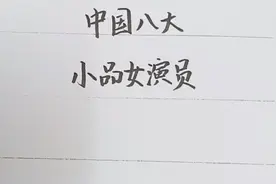 中国八大
小品女演员